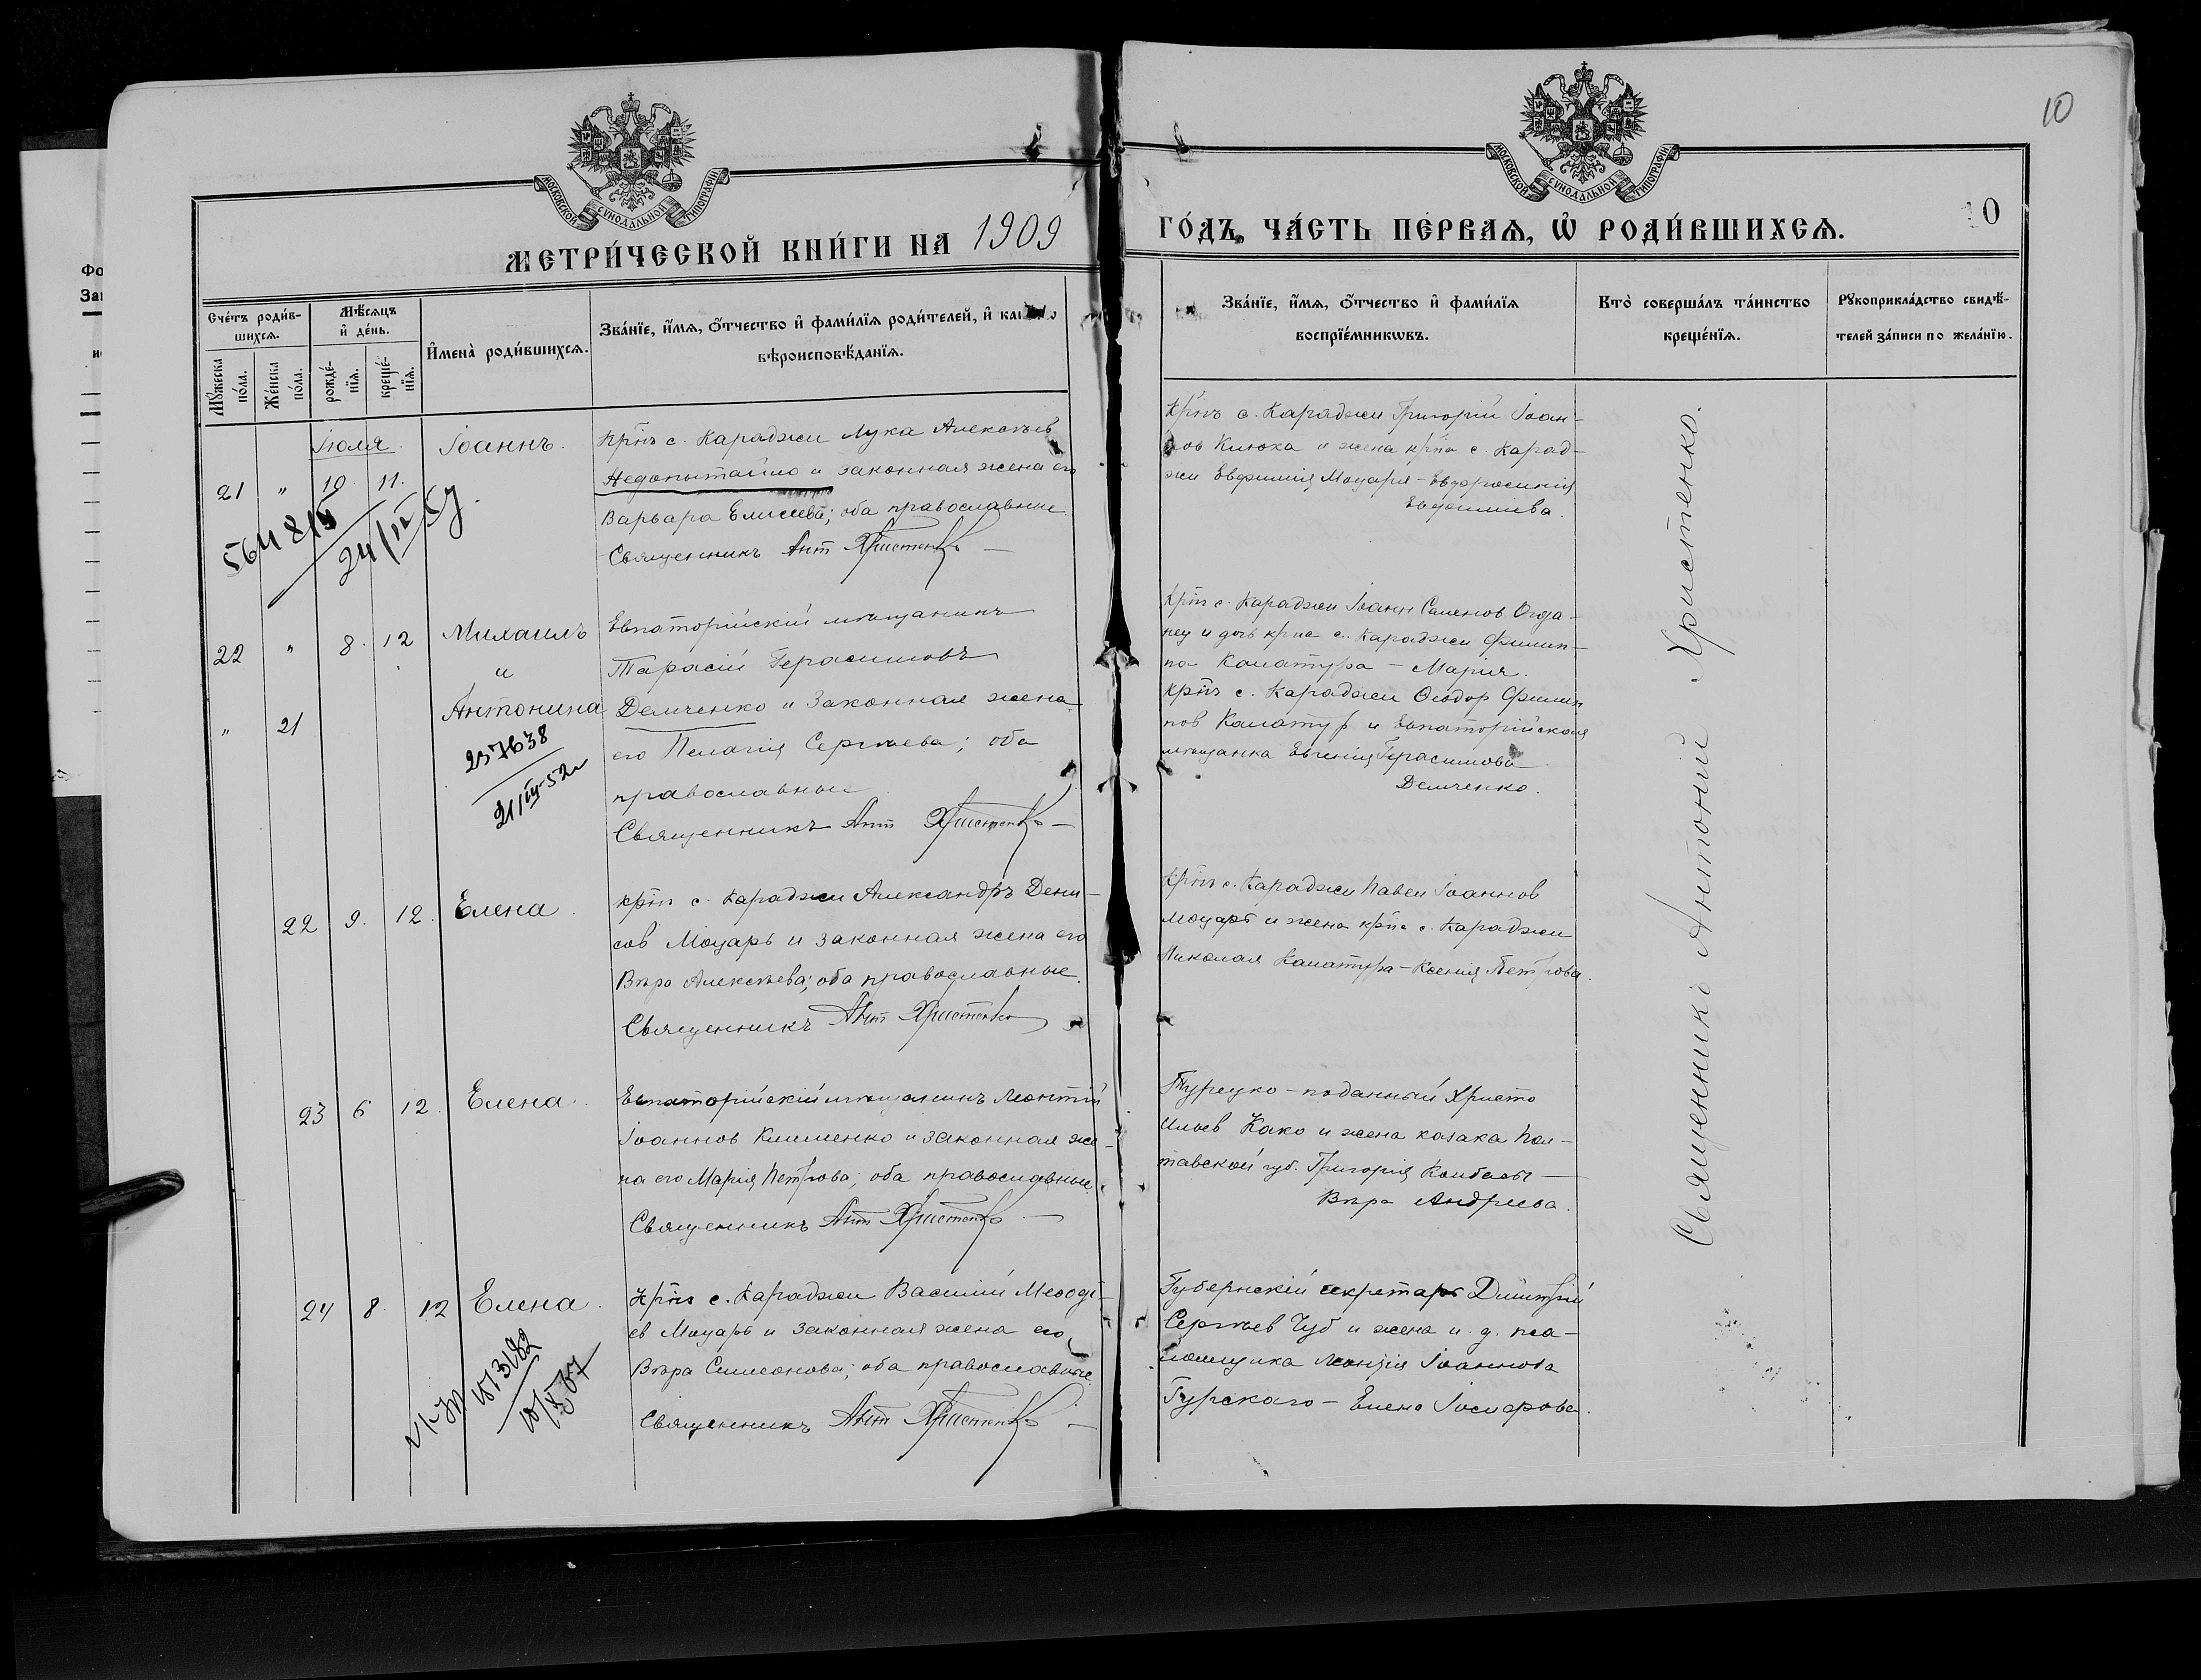 10
МОСКОВСКОЙ СѴНОДАЛЬНОЙ ТИПОГРАФІИ
МОСКОВСКОЙ СѴНОДАЛЬНОЙ ТИПОГРАФІИ
МЕТРИ́ЧЕСКОЙ КНИ́ГИ НА 1909
ГО́ДЪ, ЧА́СТЬ ПЕ́РВАѦ, Ѡ҆ РОДИ́ВШИХСѦ.
0
Сче́тъ роди́в-
шихсѧ.
Мѣ́сѧцъ
и҆ де́нь.
Мꙋ́жеска
по́ла.
Же́нска
по́ла.
рожде́-
нїѧ.
креще́-
нїѧ.
И҆мена̀ роди́вшихсѧ.
Зва́нїе, и҆́мѧ, ѻ҆́тчество и҆ фами́лїѧ роди́телей, и҆
вѣроисповѣ́данїѧ.
Зва́нїе, и҆́мѧ, ѻ҆́тчество и҆ фами́лїѧ
воспрїе́мникѡвъ.
Кто̀ соверша́лъ та́инство
креще́нїѧ.
Рꙋкоприкла́дство свидѣ́-
телей за́писи по жела́нїю.
Іюля
21 " 10. 11. Іоаннъ.
Крнъ с. Караджи Лука Алексѣев
Недопытайло и законная жена его
Варвара Елисеева; оба православные.
Священникъ Ант Христенко
Крнъ с. Караджи Григорій Іоан-
нов Клюка и жена крна с. Карад-
жи Евфимія Моцаря - Евфросинія
Евфимиева.
22 " 8. 12 Михаилъ
и
" 21 Антонина
257638
21/III-52г
Евпаторійскій мѣщанинъ
Тарасій Герасимовъ
Демченко и законная жена
его Пелагія Сергѣева; оба
православные
Священникъ Ант Христенко
Крнъ с. Караджи Іоанн Семенов
и дочь крна с. Караджи Филип-
па Калатура - Марія.
Крнъ с. Караджи Ѳеодор Филип
пов Калатур и Евпаторійская
мѣщанка Евгенія Герасимова
Демченко.
22 9. 12. Елена.
Крнъ с. Караджи Александръ Дени-
сов Моцарь и законная жена его
Вѣра Алексѣева; оба православные.
Священникъ Ант Христенко
Крнъ с. Караджи Павел Іоаннов
Моцарь и жена крна с. Караджи
Николая Калатура - Ксенія Петрова.
23 6 12. Елена.
Евпаторійскій мѣщанинъ Леонтій
Іоаннов Клименко и законная же-
на его Марія Петрова; оба православные.
Священникъ Ант Христенко
Турецко-поданный Христо
Ильев Како и жена казака Пол-
тавской губ. Григорія
Вѣра Андреева.
24 8. 12 Елена.
Крнъ с. Караджи Василий Меѳоді-
ев Моцарь и законная жена его
Вѣра Симеонова; оба православные.
Священникъ Ант Христенко
Губернскій секретарь Димитрій
Сергѣев Чуб и жена и. д. пса-
ломщика Леонтія Іоаннова
Гурскаго - Елена Іосифова.
Священникъ Антоній Христенко.